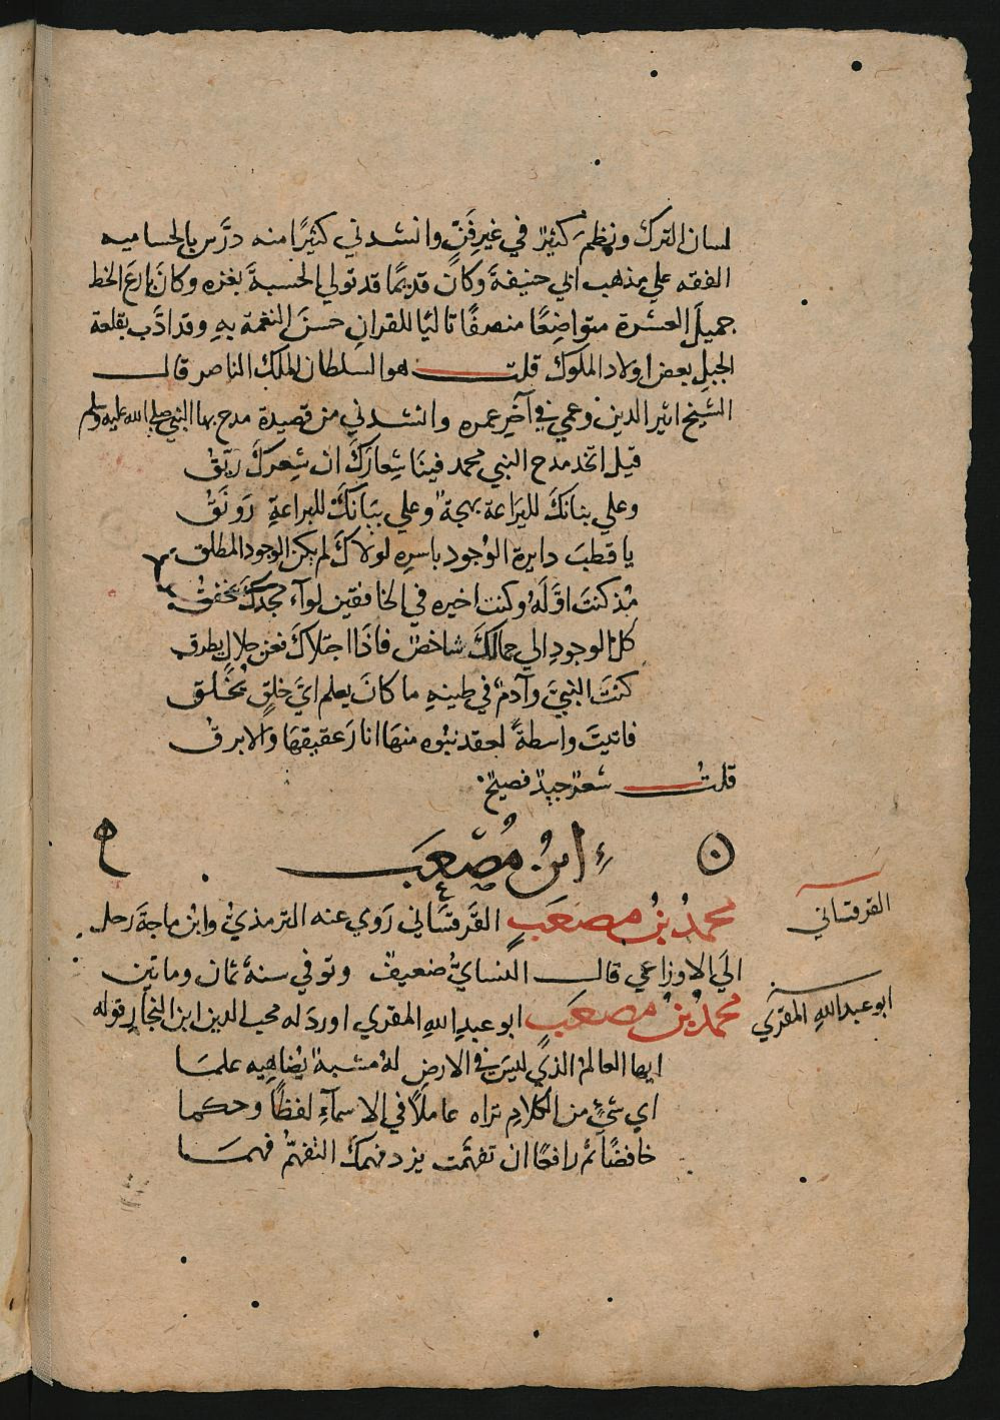 لسان الترك ونظم كثيرٌ في غير فَنٍّ وانشدني كثيرًا منه درَّس بالحساميه
الفقه علي مذهب ابي حنيفةَ وكان قديمًا قد تولي الحسبةَ بغزه وكانَ بارعَ الخط
جميلَ العشرة متواضِعًا منصفًا تاليًا للقرانِ حسنَ النغمة بهِ وقد ادَّب بقلعة
الجبلِ بعض اولاد الملوك قلت هو السلطان الملك الناصر قال
الشيخ اثير الدين وعمي في آخِر عمره وانشدني من قصيدة مدح بها النبي صلي الله عليه وسلم
قيل اتخد مدح النبي محمد فينَا شِعارَكَ ان شِعركَ ريّقُ
وعلي بنانكَ لليَراعة بهجةٌ وعلي بيَانكَ للبراعةِ رَونَقُ
يا قطبَ دايرة الوُجود باسرِه لولاكَ لم يكن الوجود المطلق
مُذ كنتَ اوَّلَهُ وكنت اخيره في الخافقين لوآء مجدكَ يخفقُ
كل الوجودِ الي جمالكَ شاخصٌ فاذَا اجتلاكَ فعن جلالٍ يطرق
كنتَ النبيَّ وآدمٌ في طينهِ ما كانَ يعلم ايَّ خلقٍ يُخْلق
فاتيتَ واسطةً لعقد نبُوه منهَا انارَ عقيقهَا والابرقُ
قلتُ شعرٌ جيدٌ فصيحٌ
ابنُ مُصْعَب
محمدُ بنُ مصعَبٍ القَرقسَاني رَوي عنه الترمذيُّ وابْن ماجةَ رحل
القرقساني
الَي الاوزاعي قال النسايُّ ضعيفٌ وتوفي سنةَ ثمان وماتين
محمدُ بنُ مصعَبٍ ابو عبدِ اللهِ المقري اوردَ له محب الدين ابن النجارِ قوله
ابو عبد اللهِ المقري
ايها العالمُ الذي ليسَ في الارضِ لهُ مشبهٌ يُضاهِيه علمَا
اي شيْءٍ من الكلامِ تراه عاملًا في الاسمآءِ لفظًا وحكما
خافضًا ثم رافعًا ان تفهَّمت يزد فهمكَ التفهّمُ فهمَا